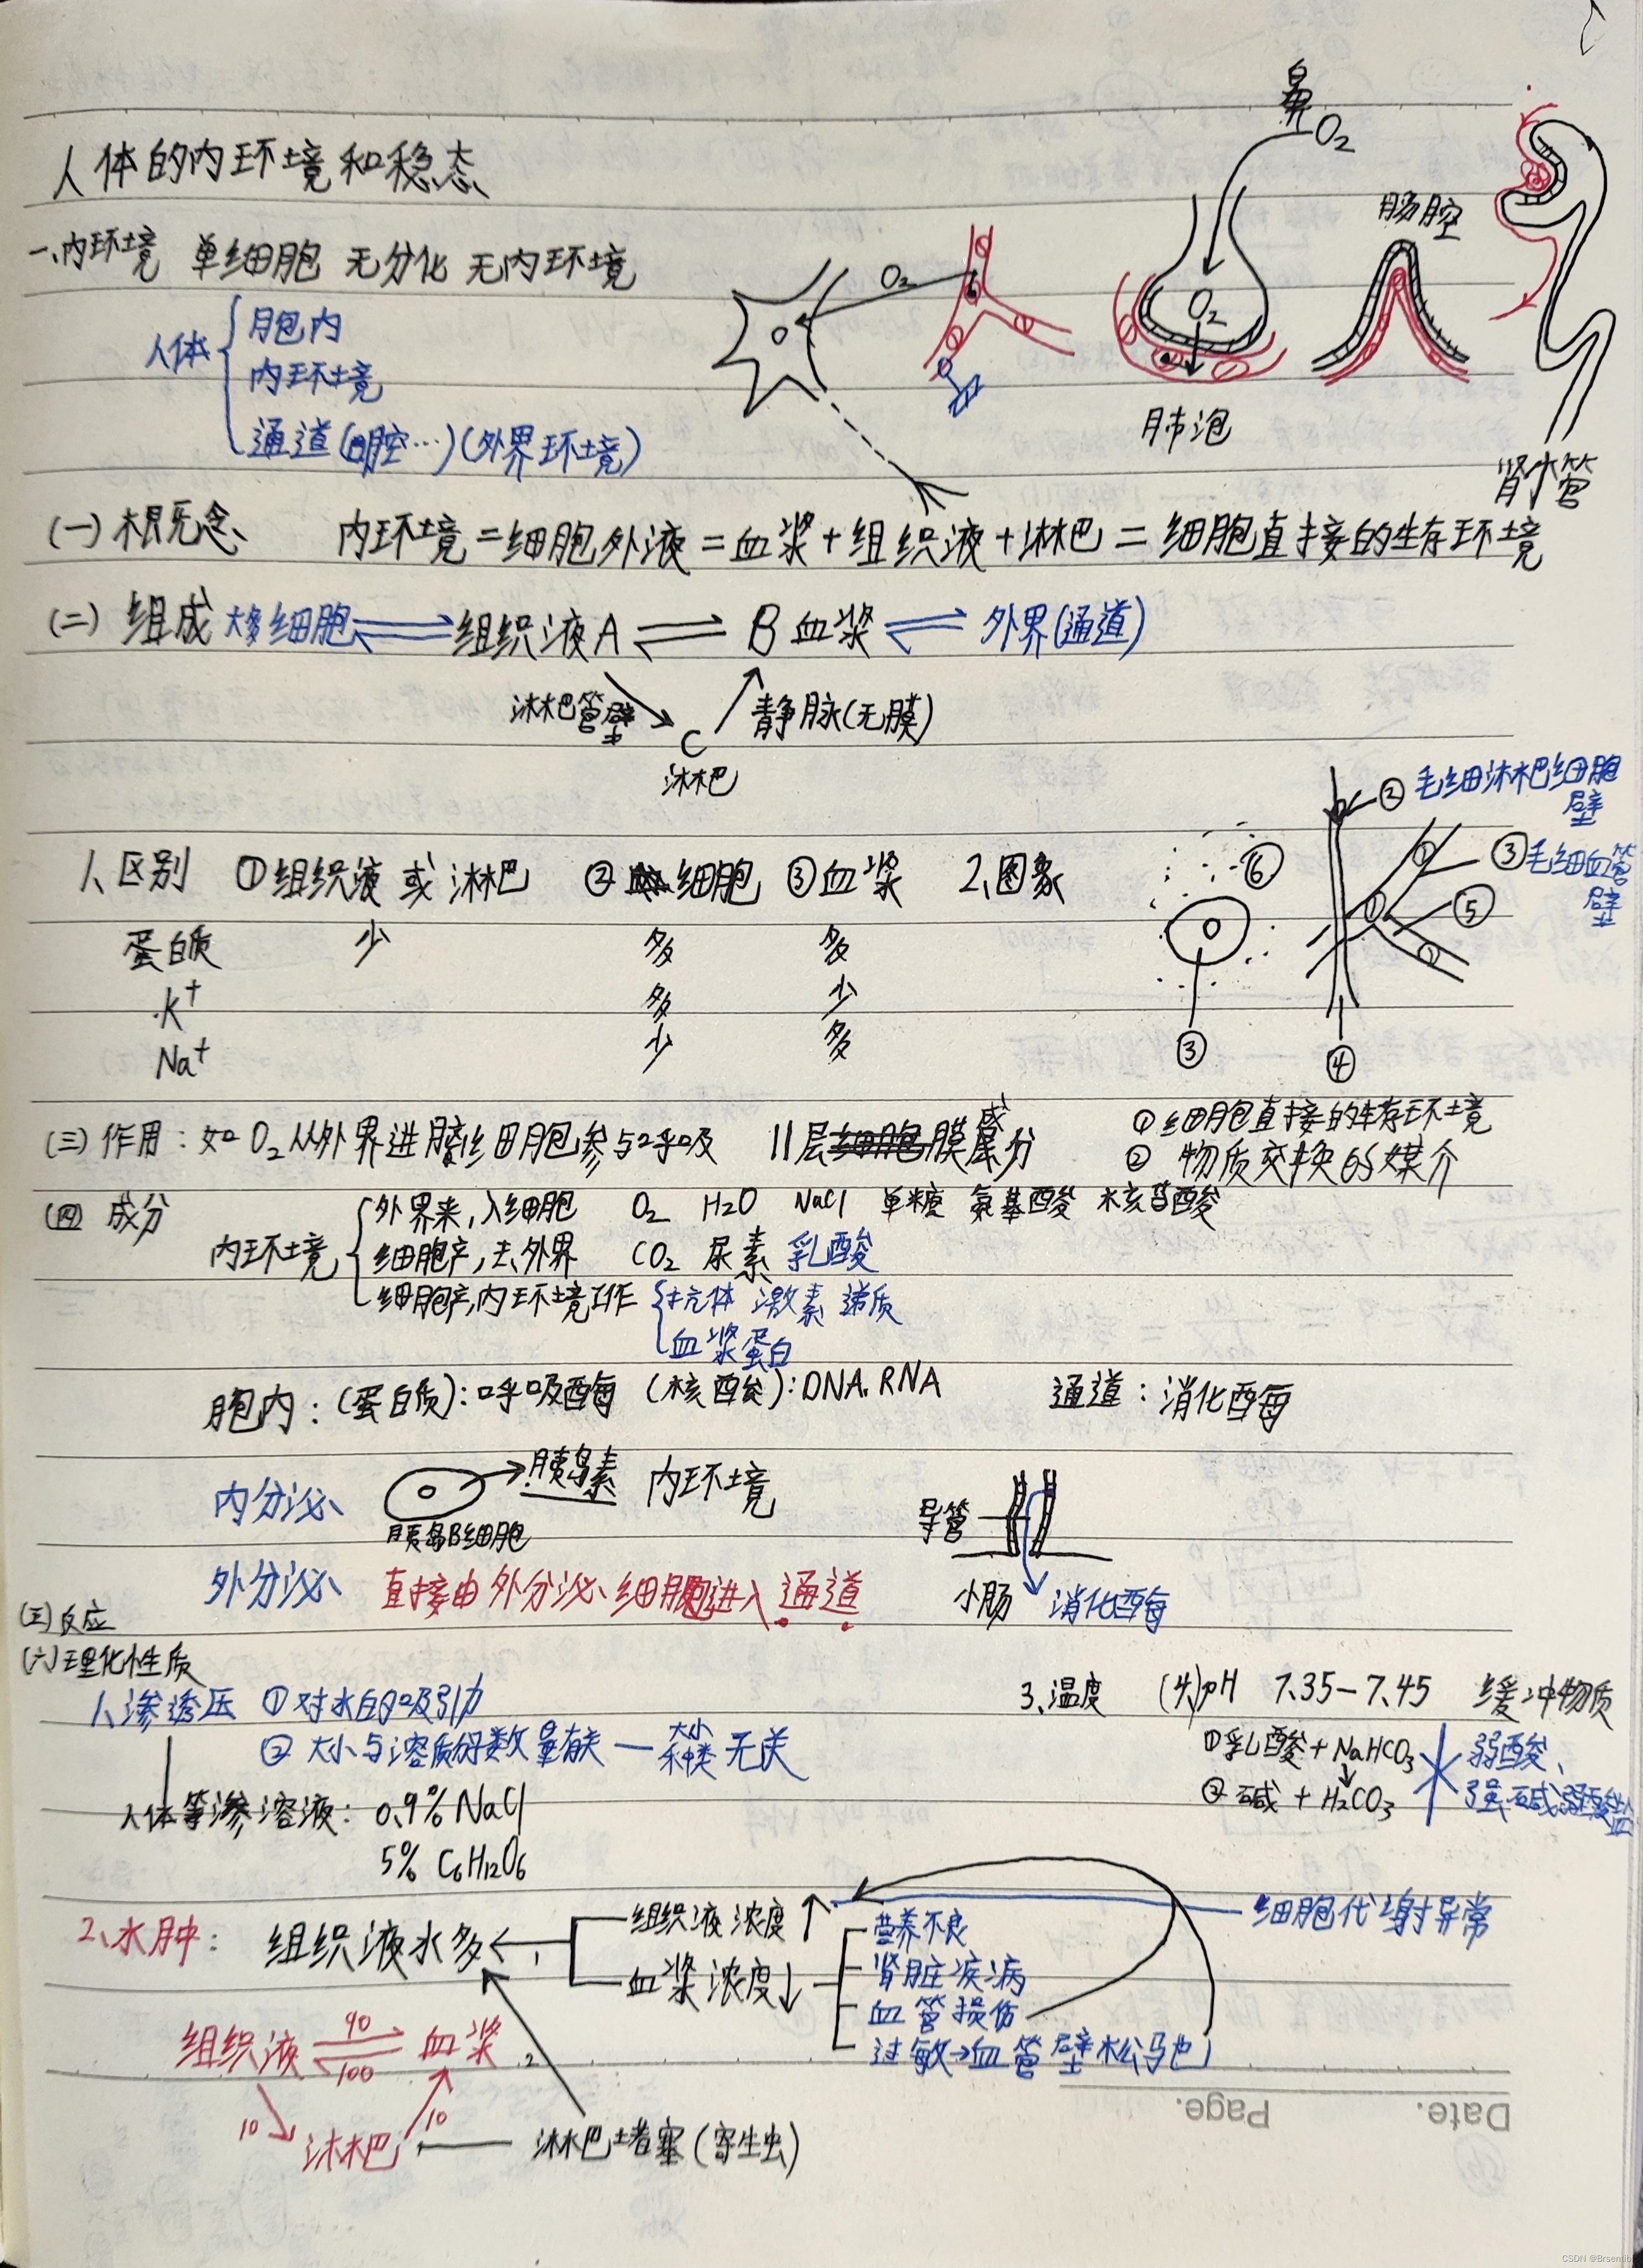 人体的内环境和稳态
鼻
O₂
肠腔
O₂
O₂
肺泡
肾小管
一、内环境 单细胞 无分化 无内环境
人体
胞内
内环境
通道(口腔…)(外界环境)
(一)概念、 内环境=细胞外液=血浆+组织液+淋巴=细胞直接的生存环境
(二)组成 大多细胞⇌组织液A⇌B血浆⇌外界(通道)
淋巴管壁 C 静脉(无膜)
淋巴
1、区别 ①组织液或淋巴 ②细胞 ③血浆 2、图象
蛋白质 少 多 多
K⁺ 多 少
Na⁺ 少 多
②毛细淋巴细胞壁
③毛细血管壁
⑥
⑤
①
③
④
(三)作用:如O₂从外界进入组织细胞参与呼吸 11层膜成分 ①细胞直接的生存环境
②物质交换的媒介
(四)成分
内环境
外界来,入细胞 O₂ H₂O NaCl 单糖 氨基酸 核苷酸
细胞产,去外界 CO₂ 尿素 乳酸
细胞产,内环境工作 抗体 激素 递质
血浆蛋白
胞内:(蛋白质):呼吸酶 (核酸):DNA、RNA 通道:消化酶
内分泌、 胰岛素 内环境
胰岛B细胞
导管
外分泌、 直接由外分泌细胞进入通道
小肠 消化酶
(五)反应
(六)理化性质
1、渗透压 ①对水的吸引力
②大小与溶质分子数量有关—大小种类无关
人体等渗溶液:0.9%NaCl
5% C₆H₁₂O₆
3、温度 (4、)pH 7.35—7.45 缓冲物质
①乳酸+NaHCO₃
②碱+H₂CO₃
弱酸、
强碱弱酸盐
2、水肿: 组织液水多← 1
组织液浓度↑
血浆浓度↓
营养不良
肾脏疾病
血管损伤
过敏→血管壁松弛
细胞代谢异常
组织液 90 ⇌ 100 血浆 2
10 淋巴 10
淋巴堵塞(寄生虫)
Date.
Page.
CSDN @Brsentibi